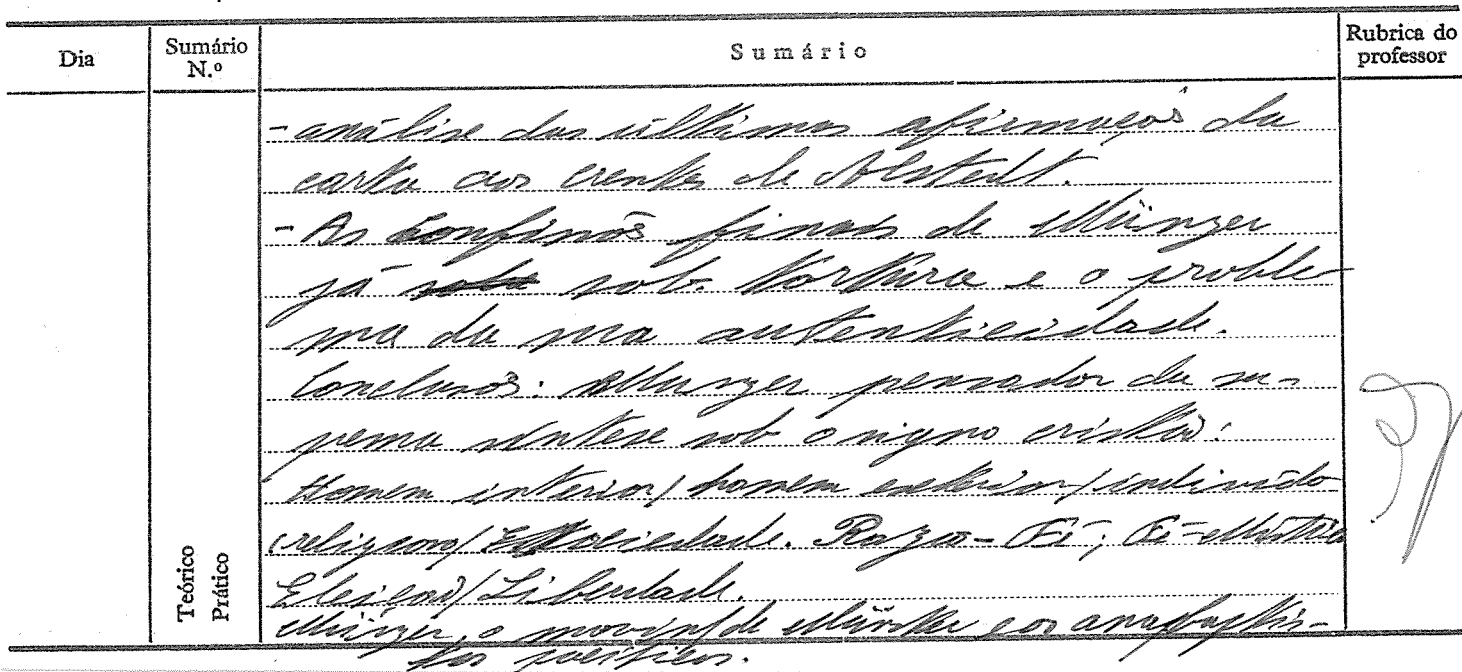 Dia
Sumário N.º
Sumário
Rubrica do professor
- análise das últimas afirmações da
carta aos crentes de Allstedt.
- As confissões finais de Münzer
já sob tortura e o proble-
ma da sua autenticidade.
Conclusões: Münzer pensador da su-
prema síntese sob o signo cristão:
Homem interior/ homem exterior/indivíduo
religioso/ Sociedade. Razão - Fé; Fé -Mística
Eleição/ Liberdade.
Münzer, o movim/ de Münster e os anabaptis-
tas pacíficos.
Teórico
Prático